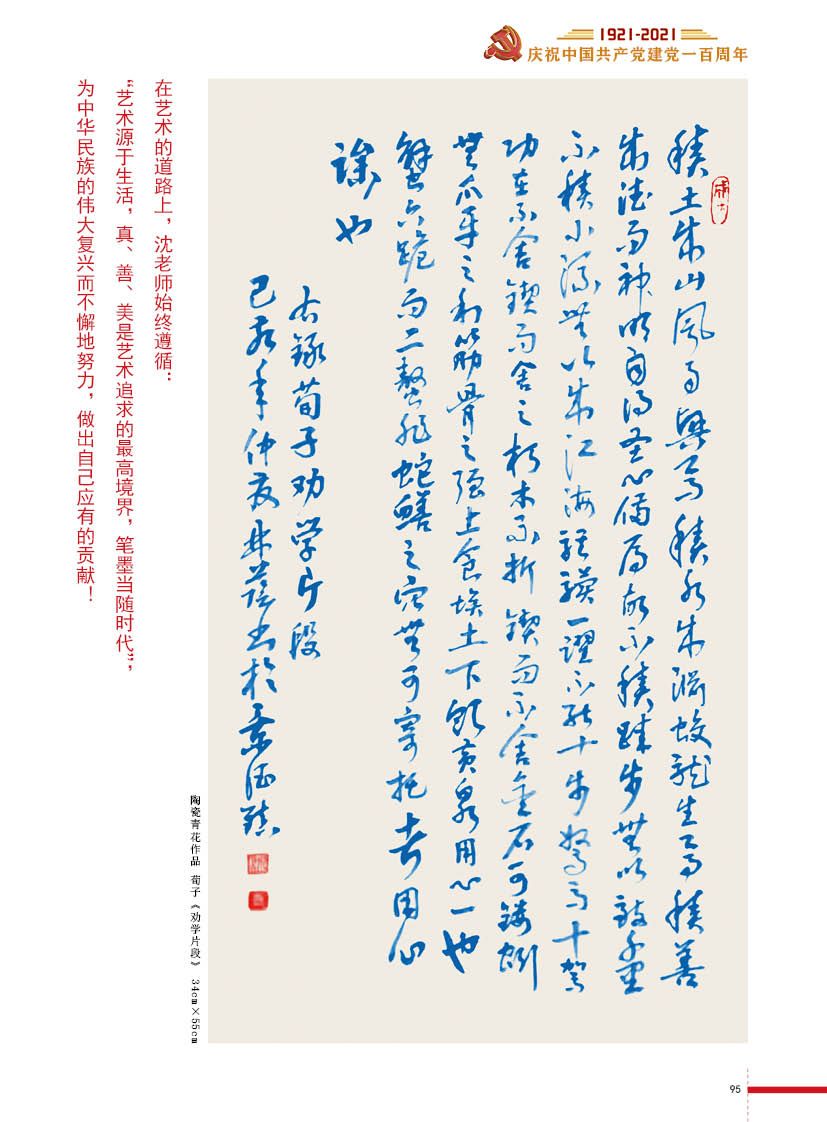 1921-2021
庆祝中国共产党建党一百周年
積土成山風雨興焉積水成淵蛟龍生焉積善
成德而神明自得圣心備焉故不積跬步無以致千里
不積小流無以成江海騏驥一躍不能十步駑馬十駕
功在不舍鍥而舍之朽木不折鍥而不舍金石可鏤蚓
無爪牙之利筋骨之强上食埃土下飲黄泉用心一也
蟹六跪而二螯非蛇鱔之穴無可寄托者用心
躁也
右錄荀子劝学片段
己亥年仲夏书於景德鎮
陶瓷青花作品 荀子《劝学片段》 34cm×55cm
在艺术的道路上，沈老师始终遵循：
“艺术源于生活，真、善、美是艺术追求的最高境界，笔墨当随时代”，
为中华民族的伟大复兴而不懈地努力，做出自己应有的贡献！
95